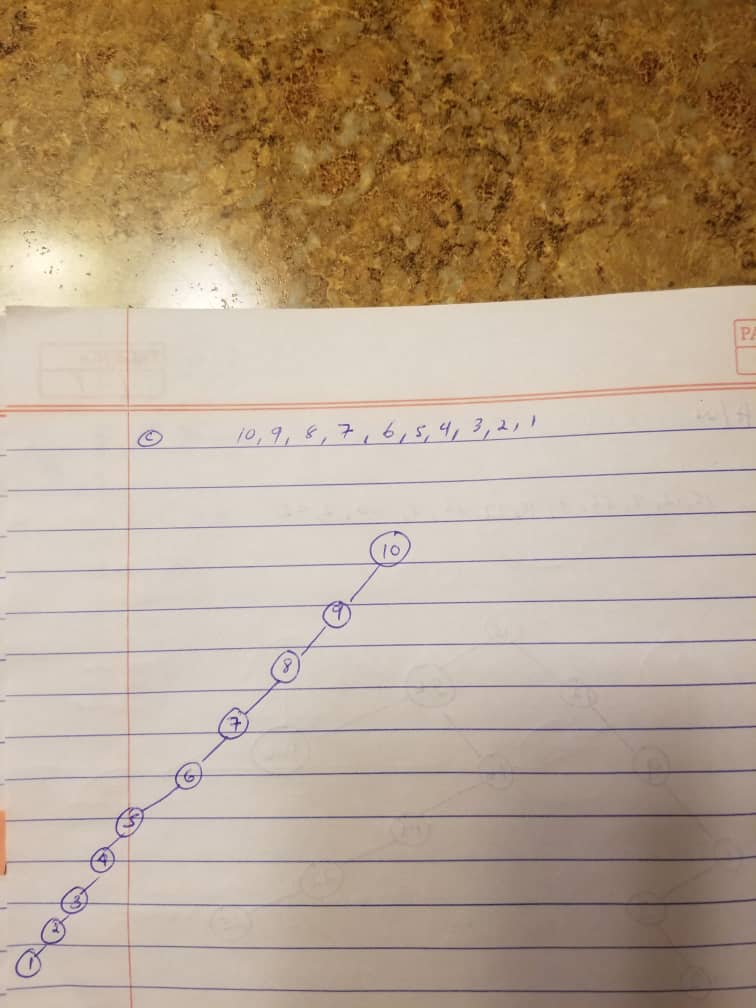 PA
© 10, 9, 8, 7, 6, 5, 4, 3, 2, 1
10
9
8
7
6
5
4
3
2
1